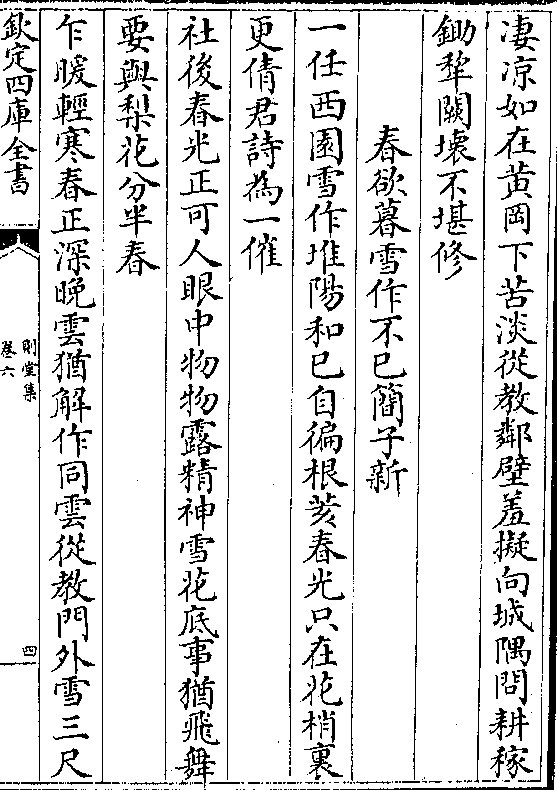 淒凉如在黄岡下苦淡從教鄰壁羞擬向城隅問耕稼
鋤犂闕壊不堪修
春欲暮雪作不已簡子新
一任西園雪作堆陽和已自徧根荄春光只在花梢裏
更倩君詩為一催
社後春光正可人眼中物物露精神雪花底事猶飛舞
要與梨花分半春
乍暖輕寒春正深晚雲猶解作同雲從教門外雪三尺
欽定四庫全書
則堂集
卷六
四